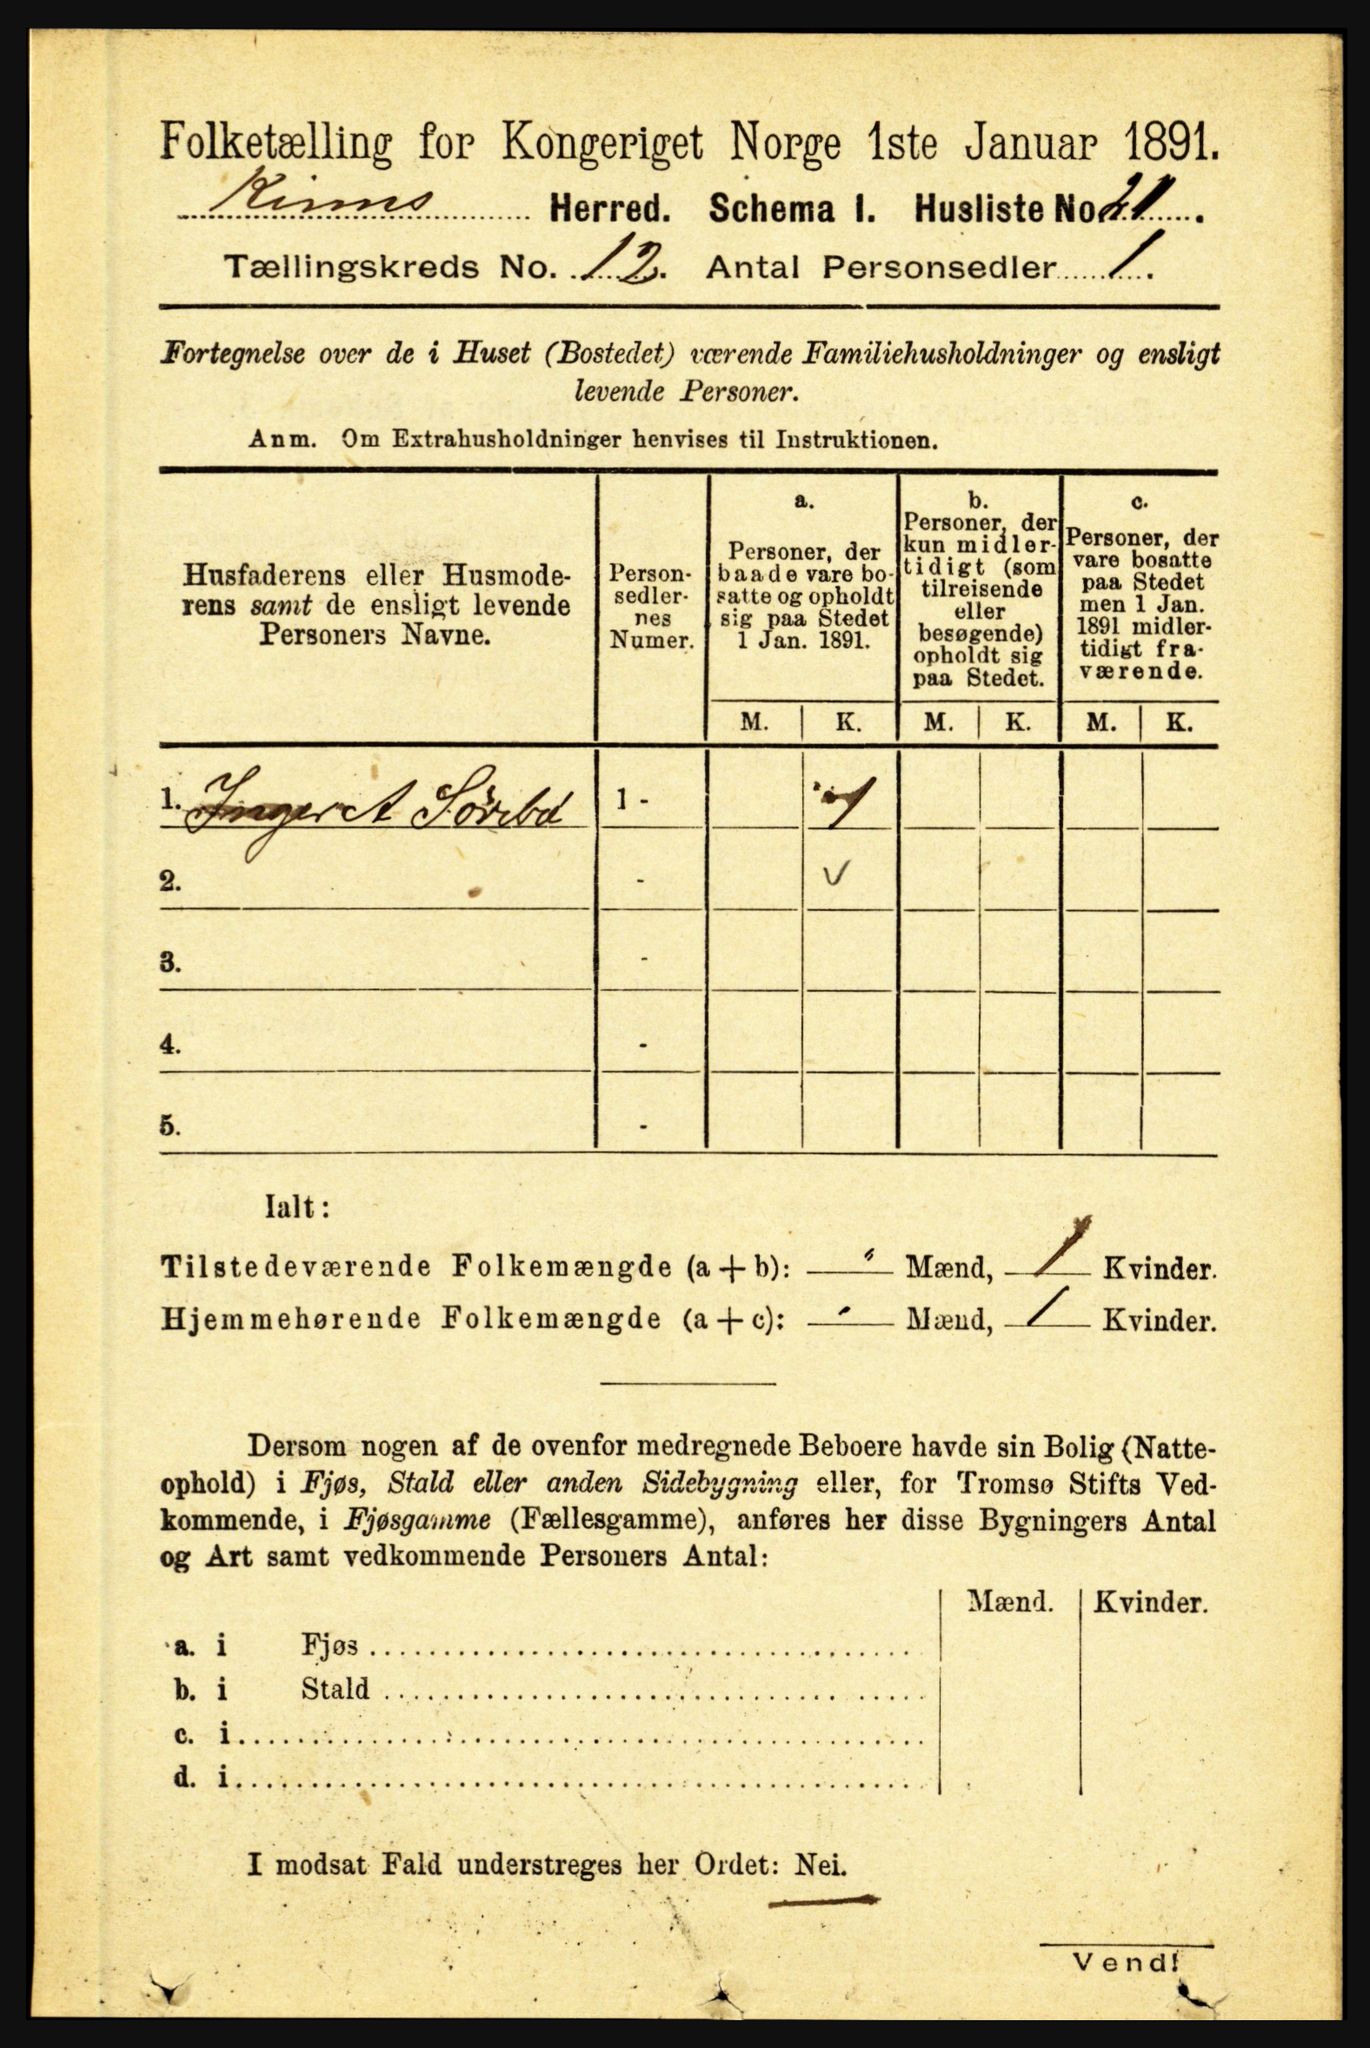 Folketælling for Kongeriget Norge 1ste Januar 1891.
Kinns Herred. Schema I. Husliste No. 21.
Tællingskreds No. 12. Antal Personsedler 1.
Fortegnelse over de i Huset (Bostedet) værende Familiehusholdninger og ensligt
levende Personer.
Anm. Om Extrahusholdninger henvises til Instruktionen.
Husfaderens eller Husmode-
rens samt de ensligt levende
Personers Navne.
Person-
sedler-
nes
Numer.
a.
Personer, der
baade vare bo-
satte og opholdt
sig paa Stedet
1 Jan. 1891.
b.
Personer, der
kun midler-
tidigt (som
tilreisende
eller
besøgende)
opholdt sig
paa Stedet.
c.
Personer, der
vare bosatte
paa Stedet
men 1 Jan.
1891 midler-
tidigt fra-
værende.
M. K. M. K. M. K.
1. Inger A Sørebø 1 - 1
2. - V
3. -
4. -
5. -
Ialt:
Tilstedeværende Folkemængde (a + b): Mænd, 1 Kvinder.
Hjemmehørende Folkemængde (a + c): Mænd, 1 Kvinder.
Dersom nogen af de ovenfor medregnede Beboere havde sin Bolig (Natte-
ophold) i Fjøs, Stald eller anden Sidebygning eller, for Tromsø Stifts Ved-
kommende, i Fjøsgamme (Fællesgamme), anføres her disse Bygningers Antal
og Art samt vedkommende Personers Antal:
Mænd. Kvinder.
a. i Fjøs
b. i Stald
c. i
d. i
I modsat Fald understreges her Ordet: Nei.
Vend!